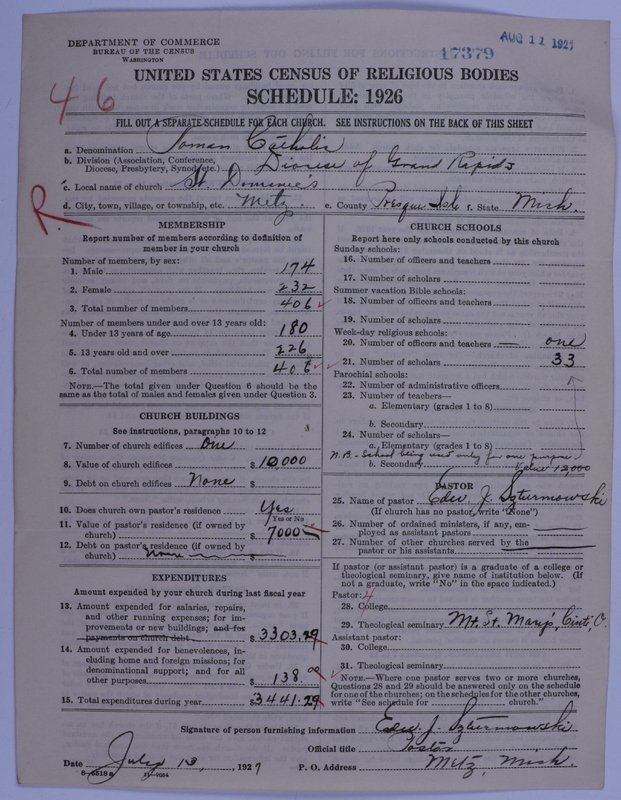 DEPARTMENT OF COMMERCE
BUREAU OF THE CENSUS
WASHINGTON
17379
AUG 11 1927
46
R.
UNITED STATES CENSUS OF RELIGIOUS BODIES
SCHEDULE: 1926
FILL OUT A SEPARATE SCHEDULE FOR EACH CHURCH. SEE INSTRUCTIONS ON THE BACK OF THIS SHEET
a. Denomination Roman Catholic
b. Division (Association, Conference, Diocese, Presbytery, Synod, etc.) Diocese of Grand Rapids
c. Local name of church St. Dominic's
d. City, town, village, or township, etc. Metz. e. County Presque Isle f. State Mich.
MEMBERSHIP
Report number of members according to definition of
member in your church
Number of members, by sex:
1. Male 174
2. Female 232
3. Total number of members 406
Number of members under and over 13 years old:
4. Under 13 years of age 180
5. 13 years old and over 226
6. Total number of members 406
NOTE.—The total given under Question 6 should be the
same as the total of males and females given under Question 3.
CHURCH BUILDINGS
See instructions, paragraphs 10 to 12
7. Number of church edifices One
8. Value of church edifices $10,000
9. Debt on church edifices None $
10. Does church own pastor's residence Yes
Yes or No
11. Value of pastor's residence (if owned by
church) $ 7000
12. Debt on pastor's residence (if owned by
church) none $
EXPENDITURES
Amount expended by your church during last fiscal year
13. Amount expended for salaries, repairs,
and other running expenses; for im-
provements or new buildings; and for
payments on church debt $ 3303.29
14. Amount expended for benevolences, in-
cluding home and foreign missions; for
denominational support; and for all
other purposes $ 138.00
15. Total expenditures during year $3441.29
CHURCH SCHOOLS
Report here only schools conducted by this church
Sunday schools:
16. Number of officers and teachers
17. Number of scholars
Summer vacation Bible schools:
18. Number of officers and teachers
19. Number of scholars
Week-day religious schools:
20. Number of officers and teachers — one
21. Number of scholars 33
Parochial schools:
22. Number of administrative officers
23. Number of teachers—
a. Elementary (grades 1 to 8)
b. Secondary
24. Number of scholars—
a. Elementary (grades 1 to 8)
N.B.- School being used only for one purpose.
b. Secondary Value 12,000
PASTOR
25. Name of pastor Edw. J. Szturmowski
(If church has no pastor, write "None")
26. Number of ordained ministers, if any, em-
ployed as assistant pastors
27. Number of other churches served by the
pastor or his assistants
If pastor (or assistant pastor) is a graduate of a college or
theological seminary, give name of institution below. (If
not a graduate, write "No" in the space indicated.)
Pastor: 4
28. College
29. Theological seminary Mt. St. Mary's, Cinti, O.
Assistant pastor:
30. College
31. Theological seminary
NOTE.—Where one pastor serves two or more churches,
Questions 28 and 29 should be answered only on the schedule
for one of the churches; on the schedules for the other churches,
write "See schedule for church."
Signature of person furnishing information Edw. J. Szturmowski
Official title Pastor
Date July 13, 1927 P. O. Address Metz, Mich.